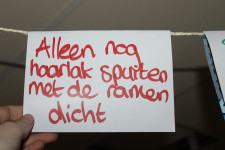 Alleen nog
haarlak spuiten
met de ramen
dicht